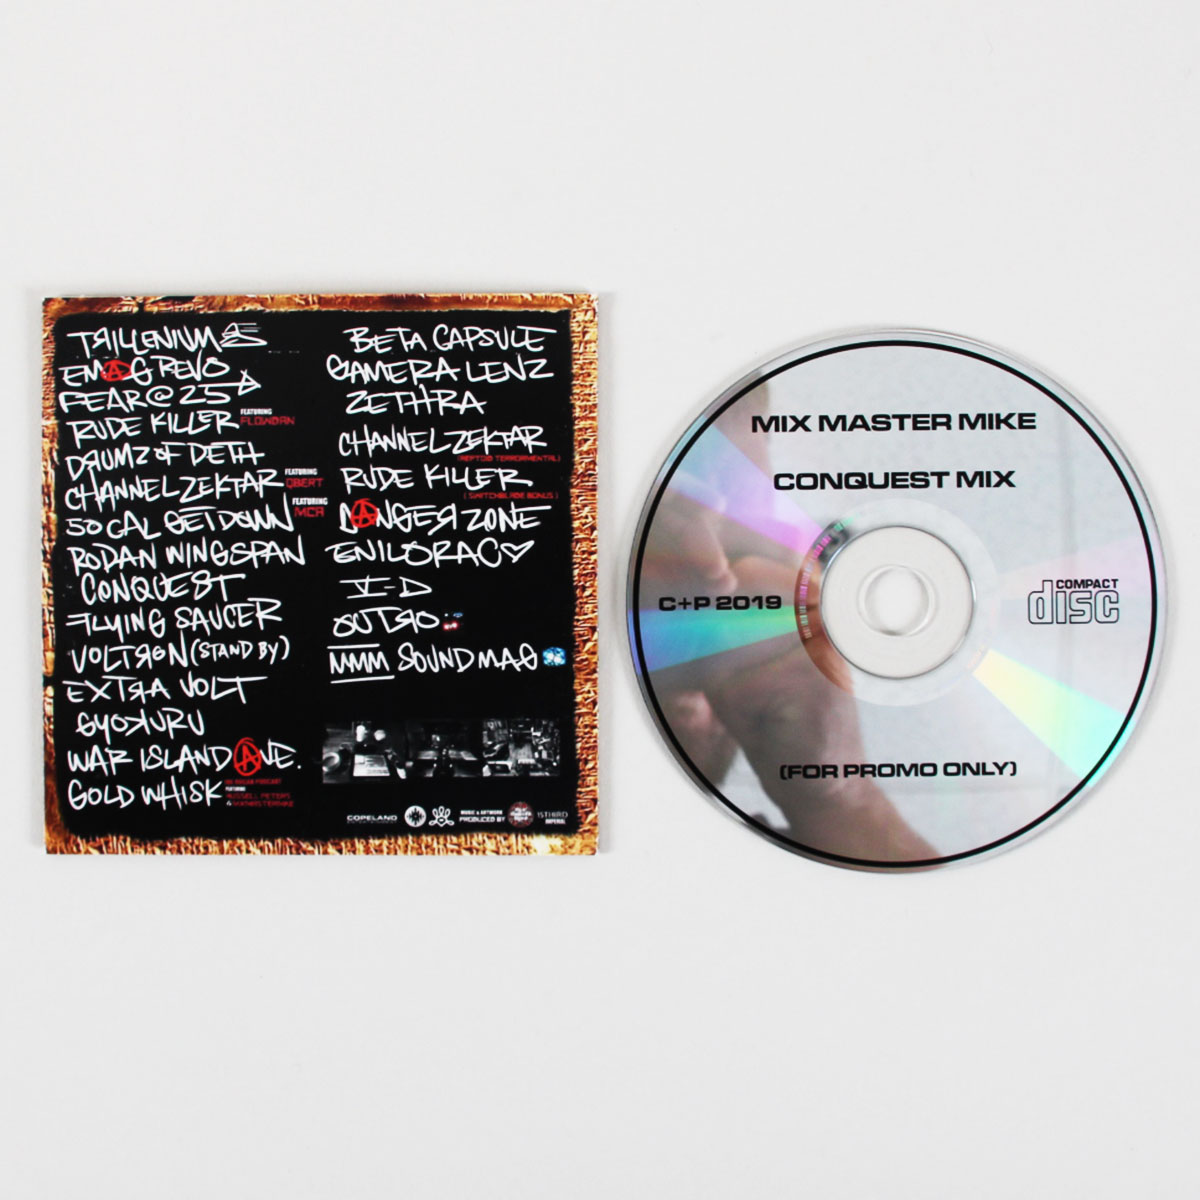 TRILLENIUM
EMAG REVO
FEAR@25
RUDE KILLER FEATURING FLOWDAN
DRUMZ OF DETH
CHANNEL ZEKTAR FEATURING QBERT
SO CAL GETDOWN FEATURING MCR
RODAN WINGSPAN
CONQUEST
FLYING SAUCER
VOLTRON (STAND BY)
EXTRA VOLT
GYOKURU
WAR ISLAND AVE.
GOLD WHISK FEATURING RUSSELL PETERS
& MIXMASTERMIKE
BETA CAPSULE
GAMERA LENZ
ZETHRA
CHANNEL ZEKTAR
(REPTOID TERRORMENTAL)
RUDE KILLER
(SWITCHBLADE BONUS)
DANGER ZONE
ENILORAC♡
V-D
OUTRO
MMM SOUND MAG
COPELAND
MUSIC & ARTWORK
PRODUCED BY
1STHIRD
IMPERIAL
MIX MASTER MIKE
CONQUEST MIX
C+P 2019
COMPACT
disc
(FOR PROMO ONLY)